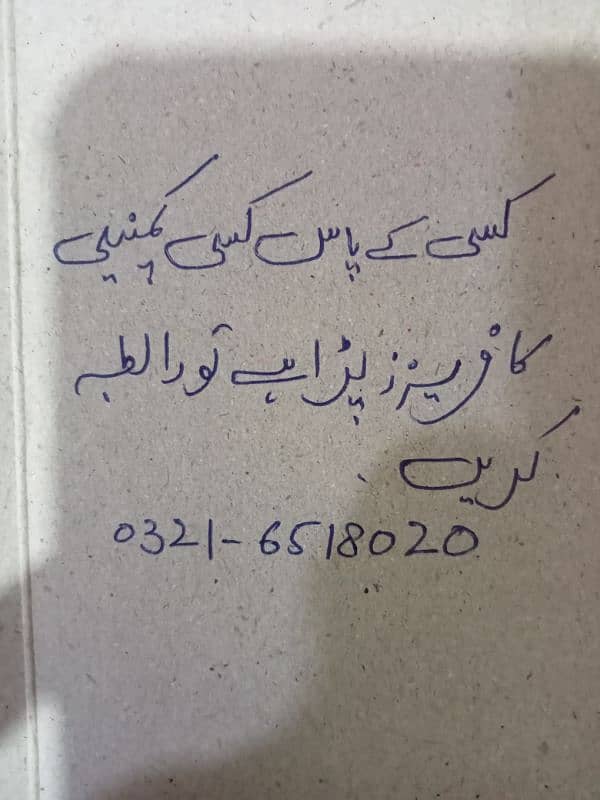 کسی کے پاس کسی کمپنی
کا فریزر پڑا ہے تو رابطہ
کریں
0321-6518020